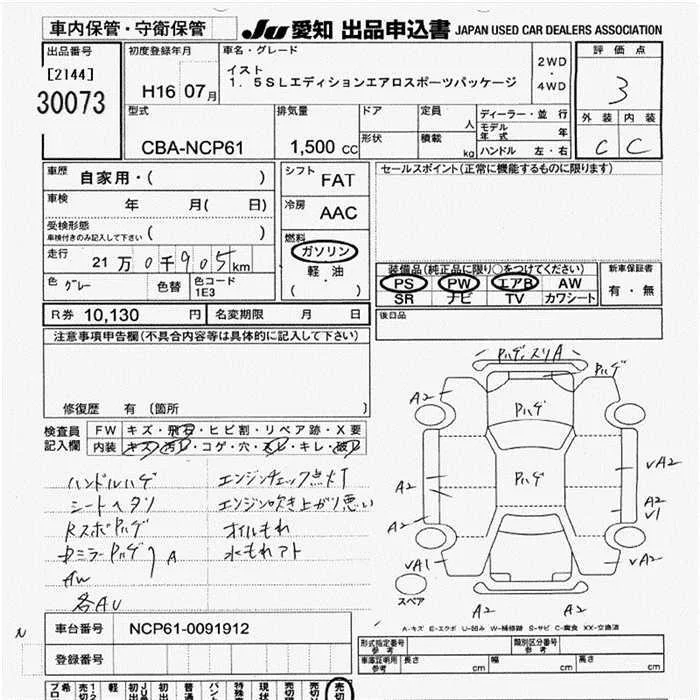 車内保管・守衛保管
JU 愛知 出品申込書 JAPAN USED CAR DEALERS ASSOCIATION
出品番号
[2144]
30073
初度登録年月
H16 07月
車名・グレード
イスト
1．5SLエディションエアロスポーツパッケージ
2WD
・
4WD
評価点
3
外装 内装
C C
型式
CBA-NCP61
排気量
1,500 cc
ドア
形状
定員
人
積載
kg
ディーラー・並行
モデル年式 年
ハンドル 左・右
車歴
自家用・( )
車検
年 月( 日)
受検形態
車検付きのみ記入して下さい ( )
走行
21万0千905km
色 グレー
色替
色コード
1E3
シフト
FAT
冷房
AAC
燃料
ガソリン
軽・油
( )
セールスポイント(正常に機能するものに限ります)
装備品(純正品に限り○をつけてください)
PS PW エアB AW
SR ナビ TV カワシート
新車保証書
有・無
後日品
R券 10,130 円
名変期限 月 日
注意事項申告欄(不具合内容等は具体的に記入して下さい)
修復歴 有 〔箇所 〕
検査員
記入欄
FW キズ・飛石・ヒビ割・リペア跡・X要
内装 キズ・汚レ・コゲ・穴・スレ・キレ・破レ
ハンドルハゲ
シートヘタリ
RスポPハゲ
ドミラーPハゲ
AW
A
各AU
エンジンチェック点灯
エンジン吹き上がり悪い
オイルもれ
水もれアト
Pハゲ,スリA
Pハゲ
A2
Pハゲ
Pハゲ
A2
A2
vA2
A2
V1
vA1
vA2
スペア
A2
A2
A-キズ E-エクボ U-凹み W-補修跡 S-サビ C-腐食 XX-交換済
N
車台番号 NCP61-0091912
登録番号
形式指定番号
参考
類別区分番号
参考
車庫証明用
参考
長さ cm
幅 cm
高さ cm